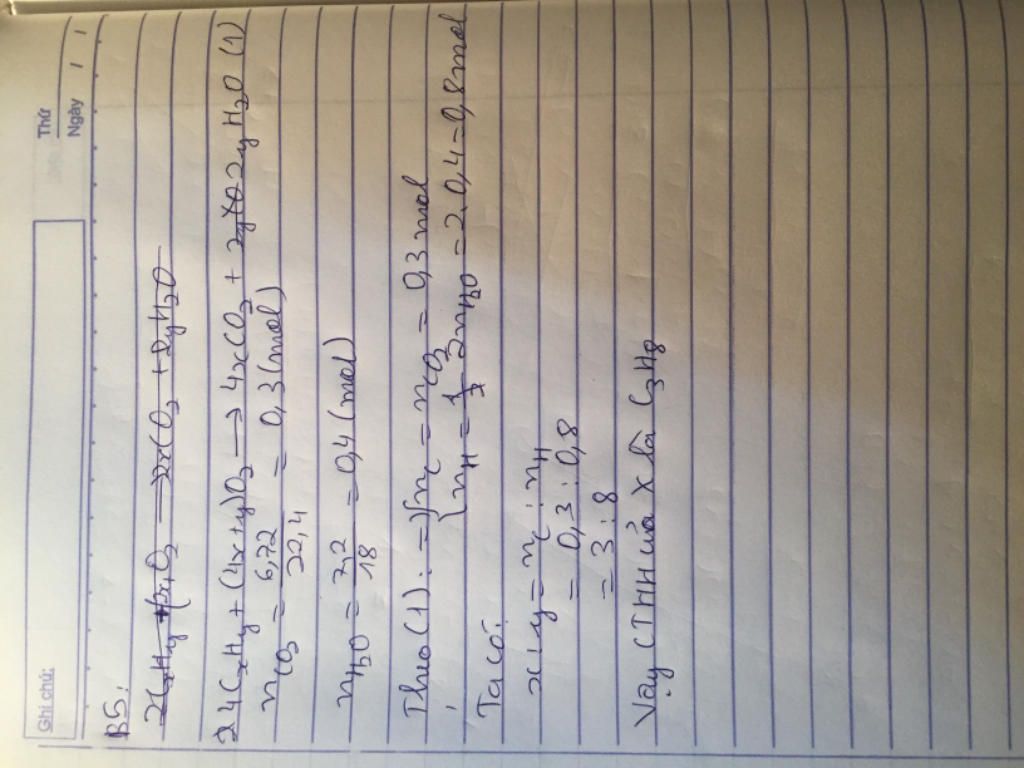 Ghi chú:
Thứ
Ngày / /
B5:
2CxHy + O2 → 2xCO2 + 2yH2O
4CxHy + (4x+y)O2 → 4xCO2 + 2yH2O (1)
nCO2 = 6,72 / 22,4 = 0,3 (mol)
nH2O = 7,2 / 18 = 0,4 (mol)
Theo (1): => { nC = nCO2 = 0,3 mol
{ nH = 2nH2O = 2.0,4 = 0,8 mol
Ta có:
x : y = nC : nH
= 0,3 : 0,8
= 3 : 8
Vậy CTHH của X là C3H8